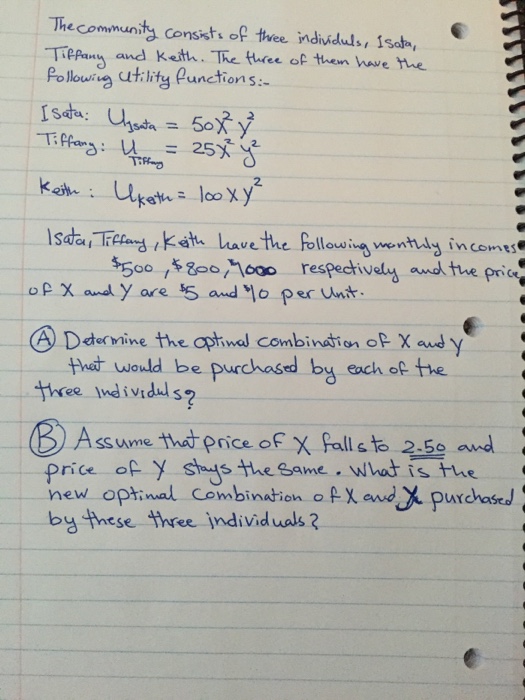 The community consists of three individuls, Isata,
Tiffany and Keith. The three of them have the
following utility functions:-
Isata: U Isata = 50X²y²
Tiffany: U Tiffany = 25X²y²
Keith: U Keith = 100xy²
Isata, Tiffany, Keith have the following monthly incomes
$500, $800, $1000 respectively and the price
of X and Y are $5 and $10 per Unit.
(A) Determine the optimal combination of X and y
that would be purchased by each of the
three individuls?
(B) Assume that price of X falls to 2.50 and
price of Y stays the same. What is the
new optimal combination of X and X purchased
by these three individuals?